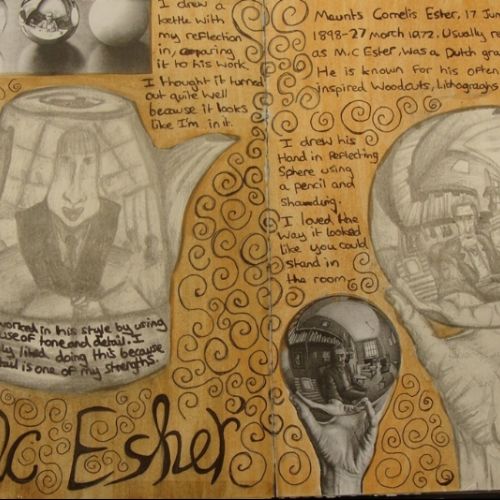 I drew a
kettle with
my reflection
in, comparing
it to his work.
I thought it turned
out quite well
because it looks
like I'm in it.
worked in his style by using
use of tone and detail. I
ly liked doing this because
tail is one of my strengths.
Mc Esher
Maunts Cornelis Esher, 17 Jun
1898-27 March 1972. Usually re
as M.C Esher, was a Dutch gra
He is known for his often
inspired Woodcuts, Lithographs
I drew his
Hand in Reflecting
Sphere using
a pencil and
shading.
I loved the
way it looked
like you could
stand in
the room.